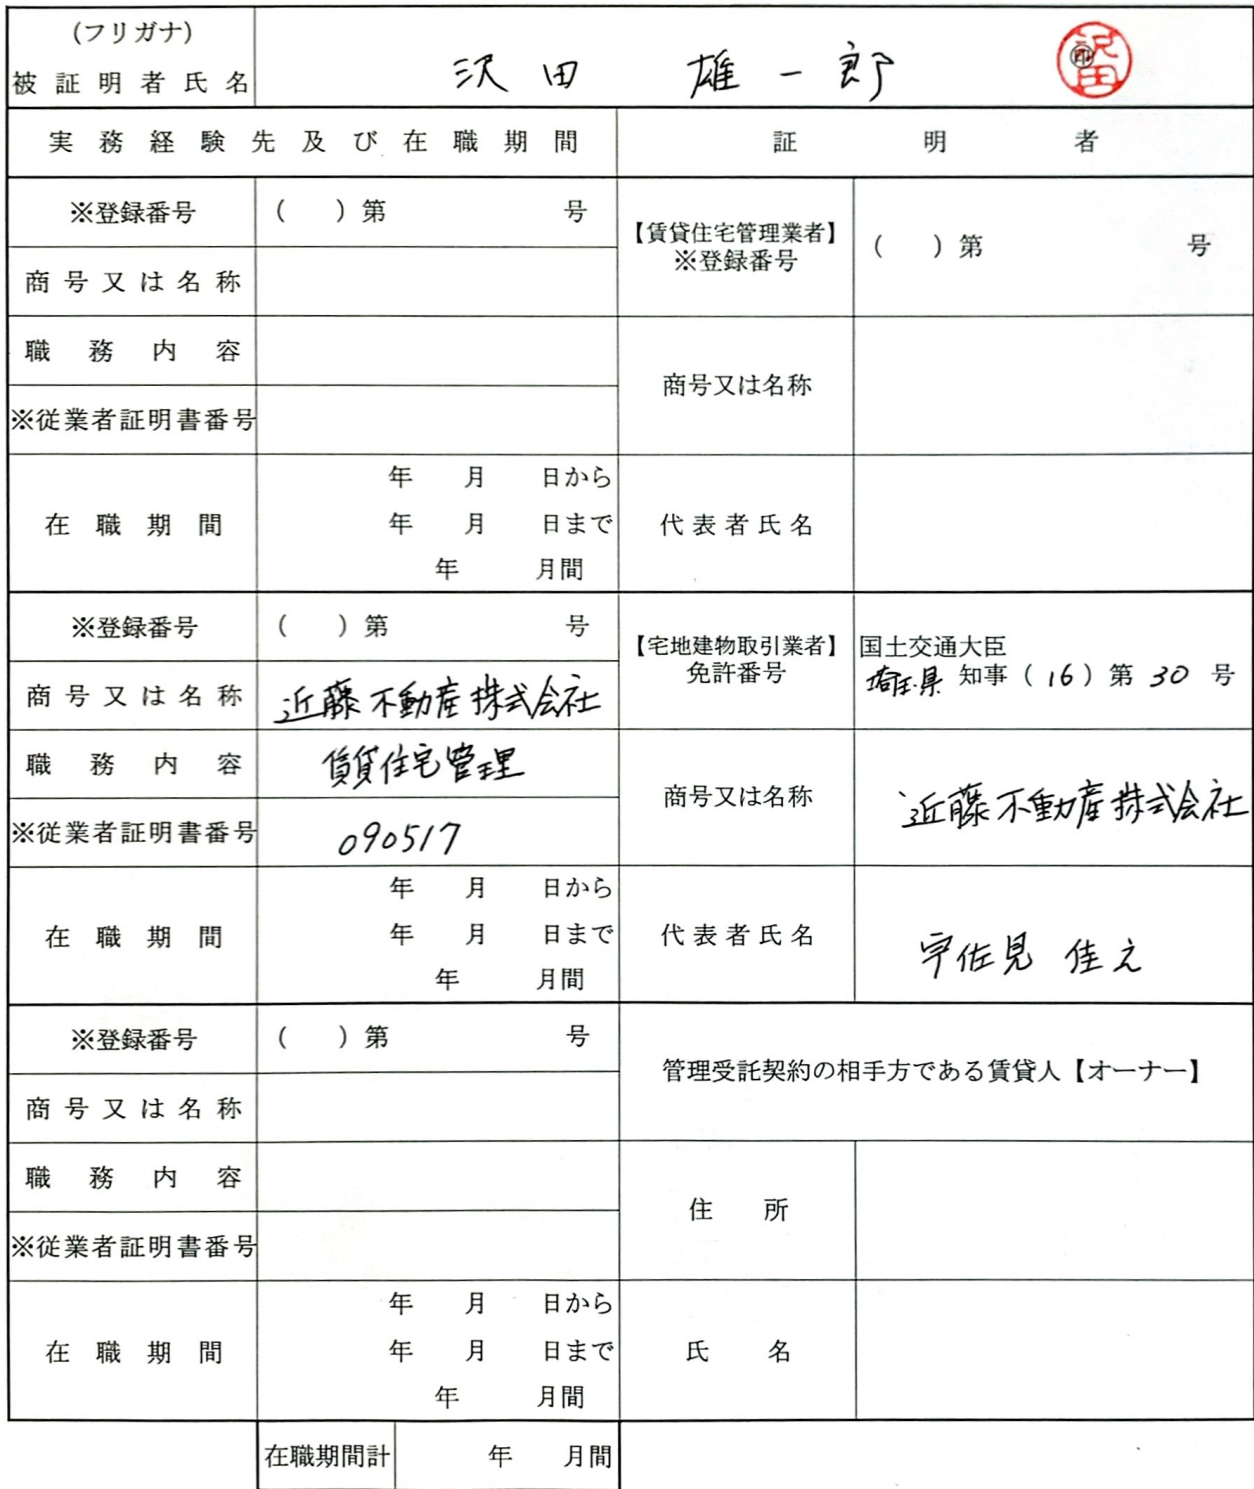 (フリガナ)
被証明者氏名
沢田 雄一郎
沢田
㊞
実務経験先及び在職期間
証明者
※登録番号
( )第 号
【賃貸住宅管理業者】
※登録番号
( )第 号
商号又は名称
職務内容
商号又は名称
※従業者証明書番号
在職期間
年 月 日から
年 月 日まで
年 月間
代表者氏名
※登録番号
( )第 号
【宅地建物取引業者】
免許番号
国土交通大臣
埼玉県 知事(16)第30号
商号又は名称
近藤不動産株式会社
職務内容
賃貸住宅管理
商号又は名称
近藤不動産株式会社
※従業者証明書番号
090517
在職期間
年 月 日から
年 月 日まで
年 月間
代表者氏名
宇佐見 佳之
※登録番号
( )第 号
管理受託契約の相手方である賃貸人【オーナー】
商号又は名称
職務内容
住所
※従業者証明書番号
在職期間
年 月 日から
年 月 日まで
年 月間
氏名
在職期間計
年 月間